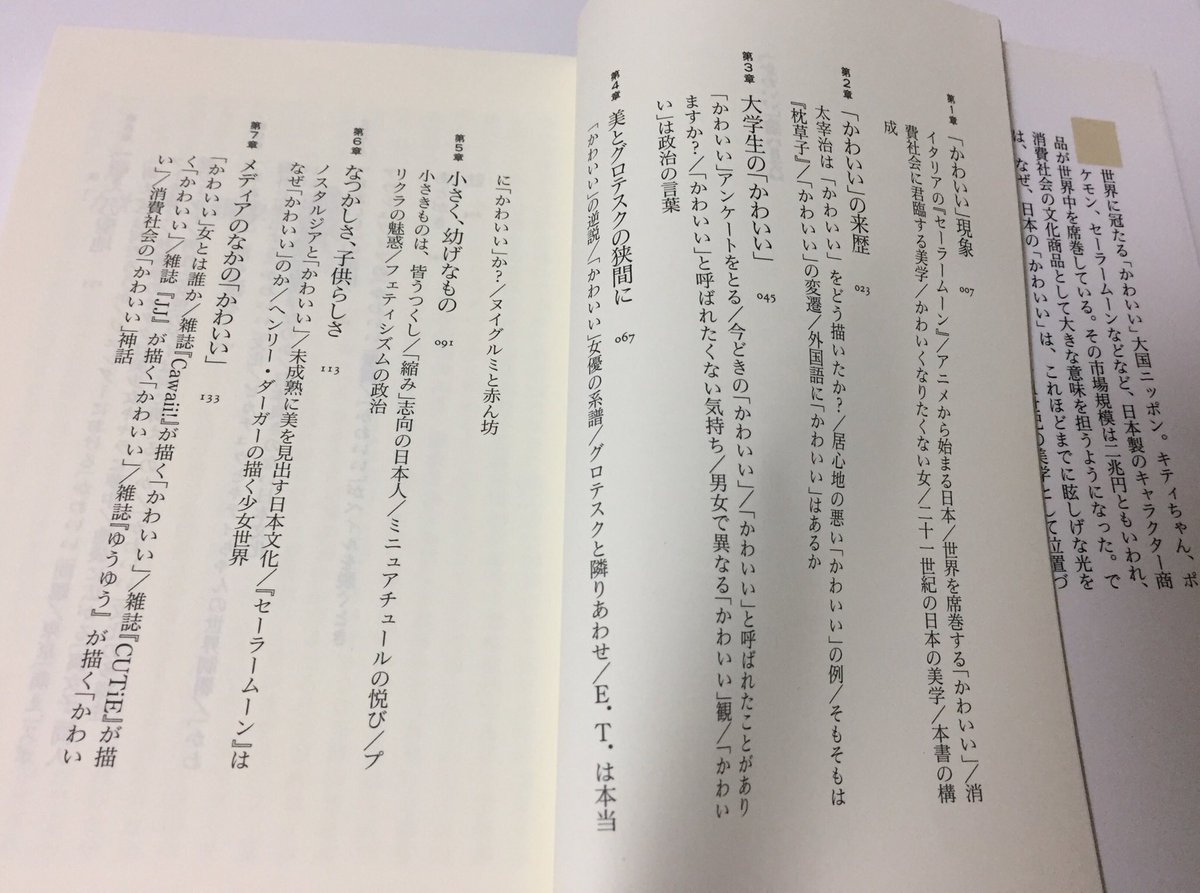 世界に冠たる「かわいい」大国ニッポン。キティちゃん、ポ
ケモン、セーラームーンなどなど、日本製のキャラクター商
品が世界中を席巻している。その市場規模は二兆円ともいわれ、
消費社会の文化商品として大きな意味を担うようになった。で
は、なぜ、日本の「かわいい」は、これほどまでに眩しげな光を
の美学として立置づ
第1章 「かわいい」現象 007
イタリアの『セーラームーン』/アニメから始まる日本/世界を席巻する「かわいい」/消
費社会に君臨する美学/かわいくなりたくない女/二十一世紀の日本の美学/本書の構
成
第2章 「かわいい」の来歴 023
太宰治は「かわいい」をどう描いたか?/居心地の悪い「かわいい」の例/そもそもは
『枕草子』/「かわいい」の変遷/外国語に「かわいい」はあるか
第3章 大学生の「かわいい」 045
「かわいい」アンケートをとる/今どきの「かわいい」/「かわいい」と呼ばれたことがあり
ますか?/「かわいい」と呼ばれたくない気持ち/男女で異なる「かわいい」観/「かわい
い」は政治の言葉
第4章 美とグロテスクの狭間に 067
「かわいい」の逆説/「かわいい」女優の系譜/グロテスクと隣りあわせ/E.T.は本当
に「かわいい」か?/ヌイグルミと赤ん坊
第5章 小さく、幼げなもの 091
小さきものは、皆うつくし/「縮み」志向の日本人/ミニュアチュールの悦び/プ
リクラの魅惑/フェティシズムの政治
第6章 なつかしさ、子供らしさ 113
ノスタルジアと「かわいい」/未成熟に美を見出す日本文化/『セーラームーン』は
なぜ「かわいい」のか/ヘンリー・ダーガーの描く少女世界
第7章 メディアのなかの「かわいい」 133
「かわいい」女とは誰か/雑誌『Cawaii!』が描く「かわいい」/雑誌『CUTiE』が描
く「かわいい」/雑誌『JJ』が描く「かわいい」/雑誌『ゆうゆう』が描く「かわい
い」/消費社会の「かわいい」神話